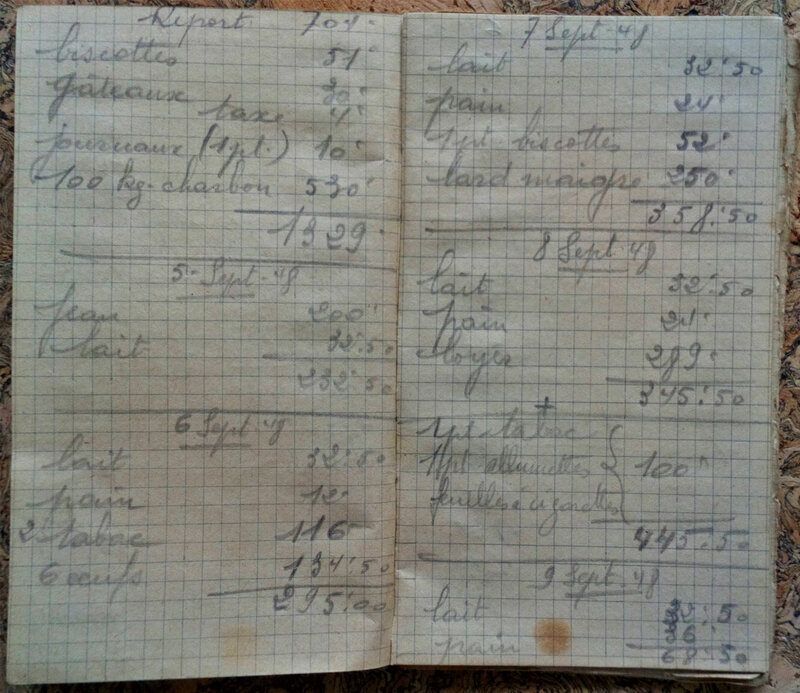 Report 701.
biscottes 51.
gâteaux 30.
taxe 4.
journaux (1 pt.) 10.
100 kg. charbon 530.
1329.
5 Sept. 48
Jean 200.
lait 32.50
232.50
6 Sept. 48
lait 32.50
pain 12.
2 tabac 116
6 oeufs 134.50
295.00
7 Sept. 48
lait 32.50
pain 24.
1 pt. biscottes 52.
lard maigre 250.
358.50
8 Sept. 48
lait 32.50
pain 24.
loyer 289.
345.50
+
1 pt. tabac
1 pt. allumettes { 100
feuilles à cigarettes
445.50
9 Sept. 48
lait 32.50
pain 36.
68.50